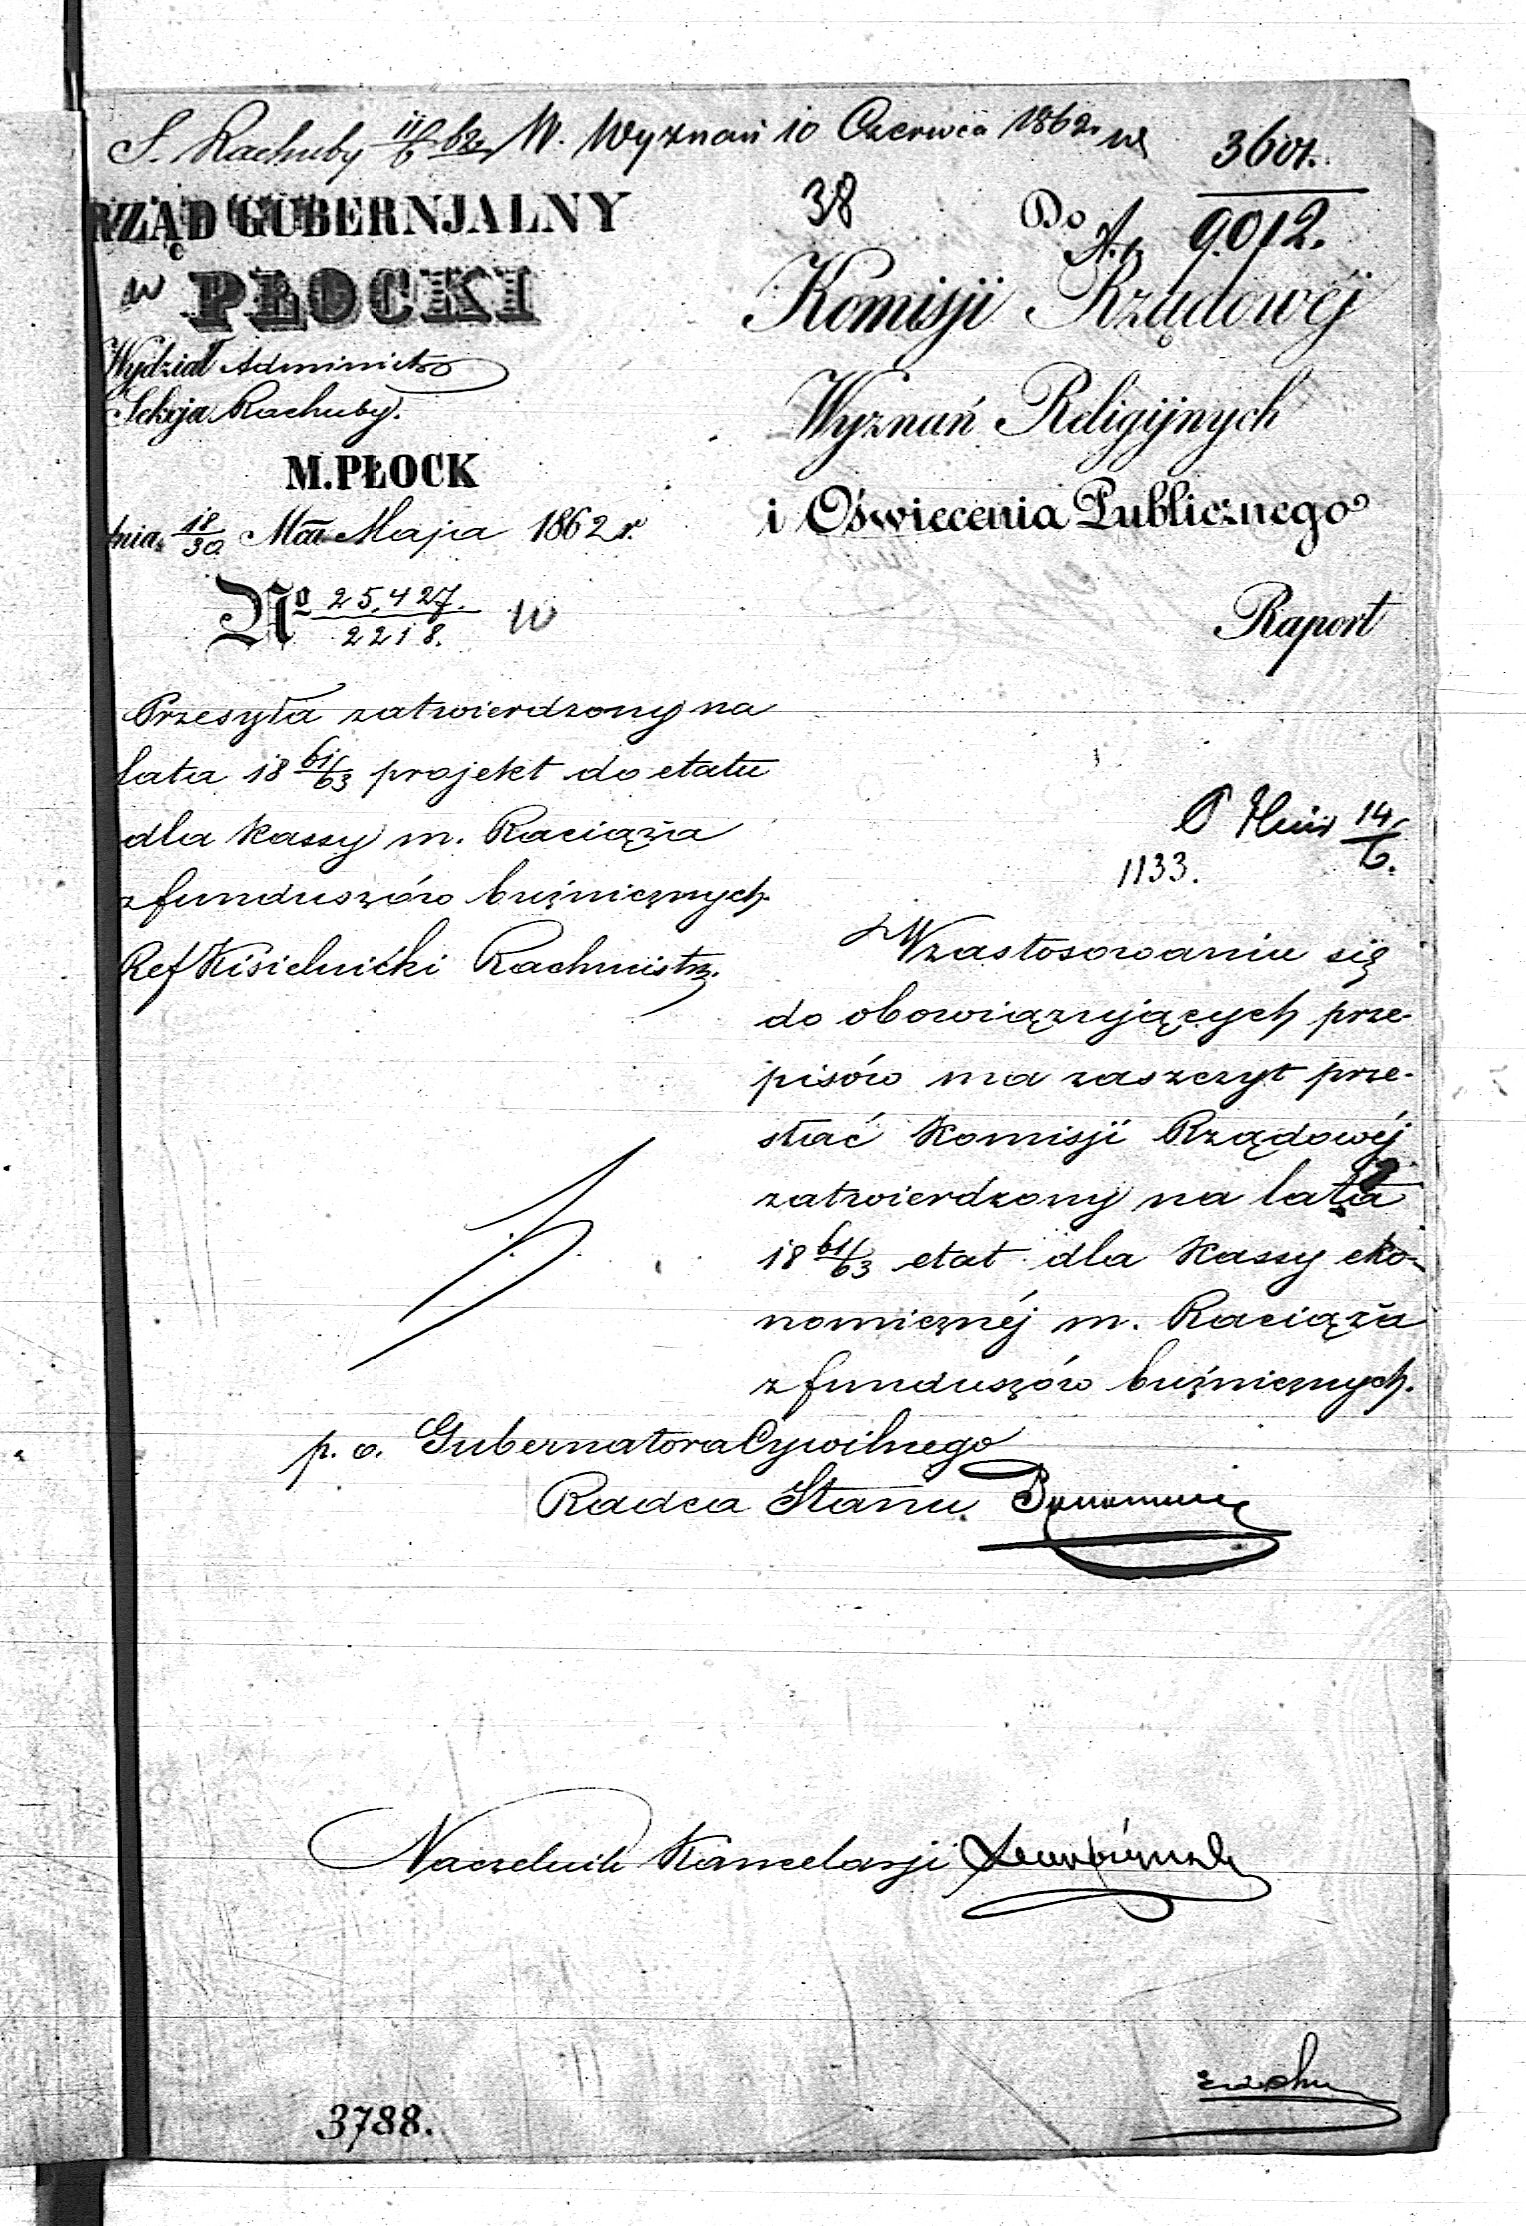 S. Rachuby 11/6 62 W. Wyznań 10 Czerwca 1862 r.
38
9012.
RZĄD GUBERNJALNY
PŁOCKI
Wydział Administr
Sekcja Rachuby.
M. PŁOCK
dnia 18/30 Maja 1862 r.
No 25,427./2218.
Do
Komisji Rządowéj
Wyznań Religijnych
i Oświecenia Publicznego
Raport
Przesyła zatwierdzony na
lata 18 61/63 projekt do etatu
dla kassy m. Raciąża
z funduszów bużnicznych.
Ref Kisielnicki Rachmistrz.
14/6.
1133.
W zastosowaniu się
do obowiązujących prze-
pisów ma zaszczyt prze-
słać Komisji Rządowéj
zatwierdzony na lata
18 61/63 etat dla Kassy eko-
nomicznéj m. Raciąża
z funduszów bużnicznych.
p. o. Gubernatora Cywilnego
Radca Stanu
Naczelnik Kancelarji
3788.